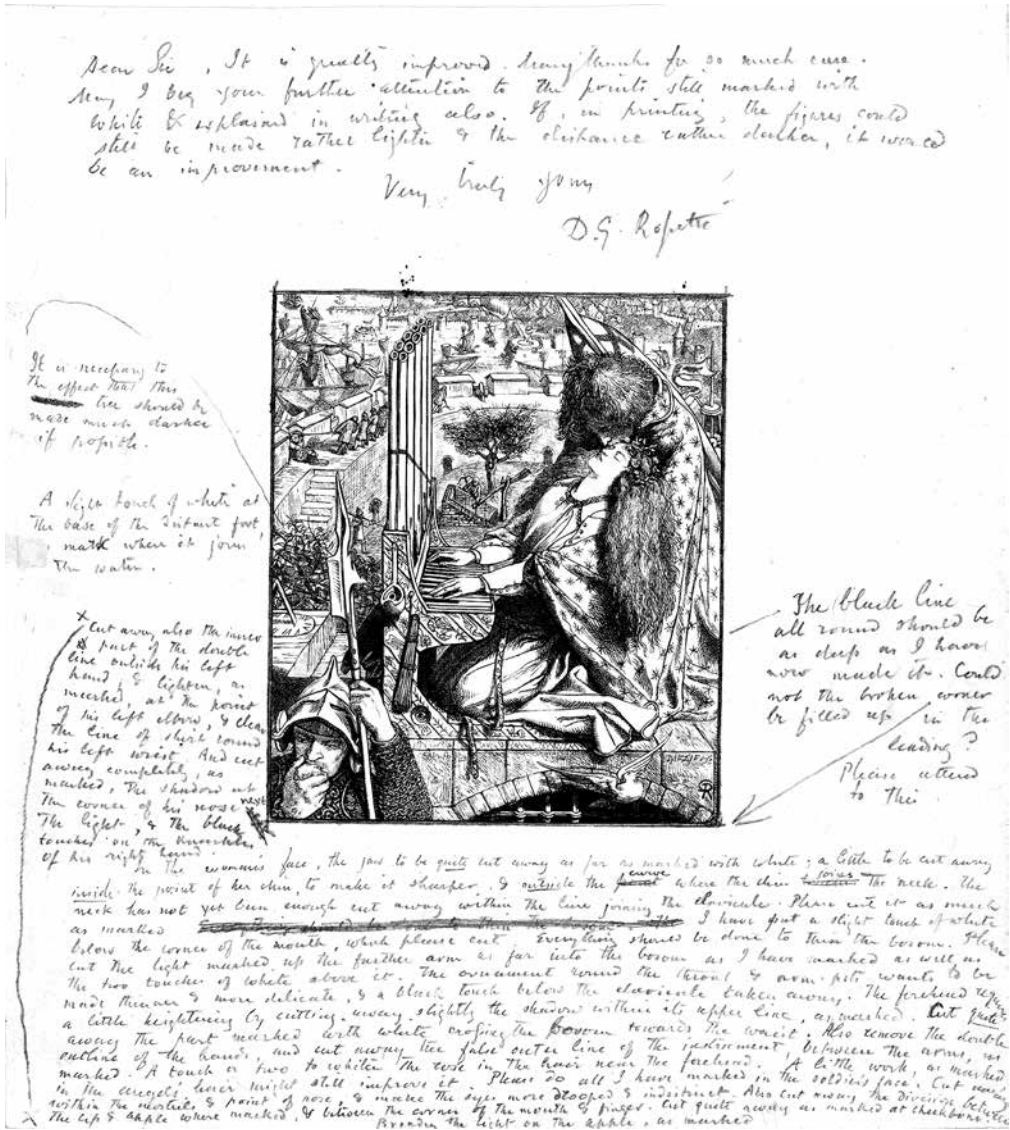 Dear Sir, It is greatly improved. Many thanks for so much care.
May I beg your further attention to the points still marked with
white & explained in writing also. If, in printing, the figures could
still be made rather lighter & the distance rather darker, it would
be an improvement.
Very truly yours
D. G. Rossetti
It is necessary to
the effect that this
tree should be
made much darker
if possible.
A slight touch of white at
the base of the distant foot,
mark where it joins
the water.
The black line
all round should be
as deep as I have
now made it. Could
not the broken corner
be filled up in the
leading?
Please attend
to this.
X Cut away also the inner
part of the double
line outside his left
hand, & lighten, as
marked, at the point
of his left elbow, & clean
the line of shirt round
his left wrist. And cut
away completely, as
marked, the shadow at
the corner of his nose next
the light, & the black
touches on the knuckles
of his right hand
On the woman's face, the jaw to be quite cut away as far as marked with white; a little to be cut away
inside the point of her chin, to make it sharper & outside the curve where the chin joins the neck. The
neck has not yet been enough cut away within the line joining the clavicule. Please cut it as much
as marked I have put a slight touch of white
below the corner of the mouth, which please cut. Everything should be done to thin the bosom. Please
cut the light marked up the further arm as far into the bosom as I have marked as well as
the two touches of white above it. The ornament round the throat & arm-pits wants to be
made thinner & more delicate, & a black touch below the clavicule taken away. The forehead
a little heightening by cutting away slightly the shadow within its upper line, as marked. Cut quite
away the part marked with white crossing the bosom towards the waist. Also remove the double
outline of the hands, and cut away the false outer line of the instrument between the arms, as
marked. A touch or two to whiten the rose in the hair near the forehead. A little work, as marked
in the angel's hair might still improve it. Please do all I have marked in the soldier's face. Cut away
within the nostrils & point of nose, & make the eyes more drooped & indistinct. Also cut away the division between
the lip & apple where marked, & between the corner of the mouth & finger. Cut quite away as marked at cheekbone.
Broaden the light on the apple, as marked